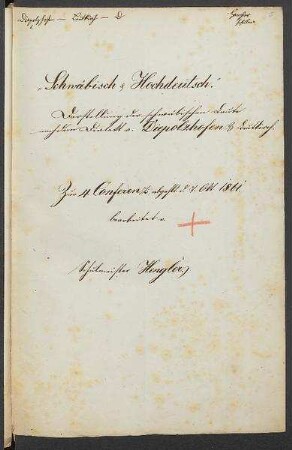 Diepolzhofen – Leutkirch – D
„Schwäbisch & Hochdeutsch.“
Darstellung der schwäbischen Laute
nach dem Dialekt v. Diepolzhofen O/A Leutkirch.
Zur 4. Conferenz abgeh. d. 7 Okt 1861
bearbeitet v.
Schulmeister Hengler